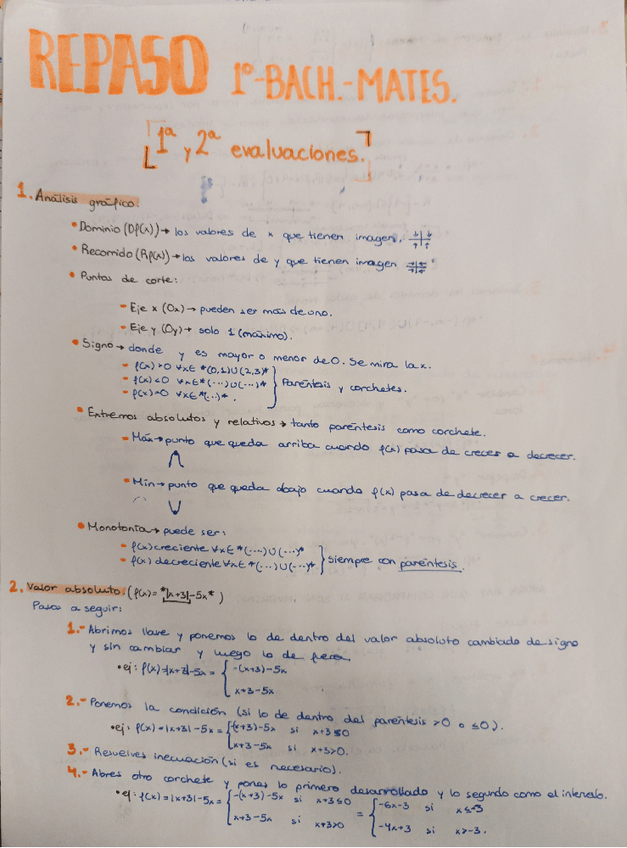 REPASO 1º-BACH.-MATES.
1ª y 2ª evaluaciones.
1. Análisis gráfico:
• Dominio (Df(x)) → los valores de x que tienen imagen.
• Recorrido (Rf(x)) → los valores de y que tienen imagen
• Puntos de corte:
- Eje x (Ox) → pueden ser más de uno.
- Eje y (Oy) → solo 1 (máximo).
• Signo → donde y es mayor o menor de 0. Se mira la x.
- f(x) > 0 ∀x∈ *(0,1)∪(2,3)*
- f(x) < 0 ∀x∈ *(...)∪(...)* } Paréntesis y corchetes.
- f(x) = 0 ∀x∈ *(...)*.
• Extremos absolutos y relativos → tanto paréntesis como corchete.
- Máx → punto que queda arriba cuando f(x) pasa de crecer a decrecer.
- Mín → punto que queda abajo cuando f(x) pasa de decrecer a crecer.
• Monotonía → puede ser:
- f(x) creciente ∀x∈ *(...)∪(...)*
- f(x) decreciente ∀x∈ *(...)∪(...)* } siempre con paréntesis.
2. Valor absoluto: (f(x)= *|x+3|-5x*)
Pasos a seguir:
1.- Abrimos llave y ponemos lo de dentro del valor absoluto cambiado de signo
y sin cambiar y luego lo de fuera.
• ej: f(x)=|x+3|-5x = { -(x+3)-5x
x+3-5x
2.- Ponemos la condición (si lo de dentro del paréntesis >0 o ≤0).
• ej: f(x)=|x+3|-5x = { -(x+3)-5x si x+3≤0
x+3-5x si x+3>0.
3.- Resuelves inecuación (si es necesario).
4.- Abres otro corchete y pones lo primero desarrollado y lo segundo como el intervalo.
• ej: f(x)=|x+3|-5x = { -(x+3)-5x si x+3≤0 = { -6x-3 si x≤-3
x+3-5x si x+3>0 -4x+3 si x>-3.